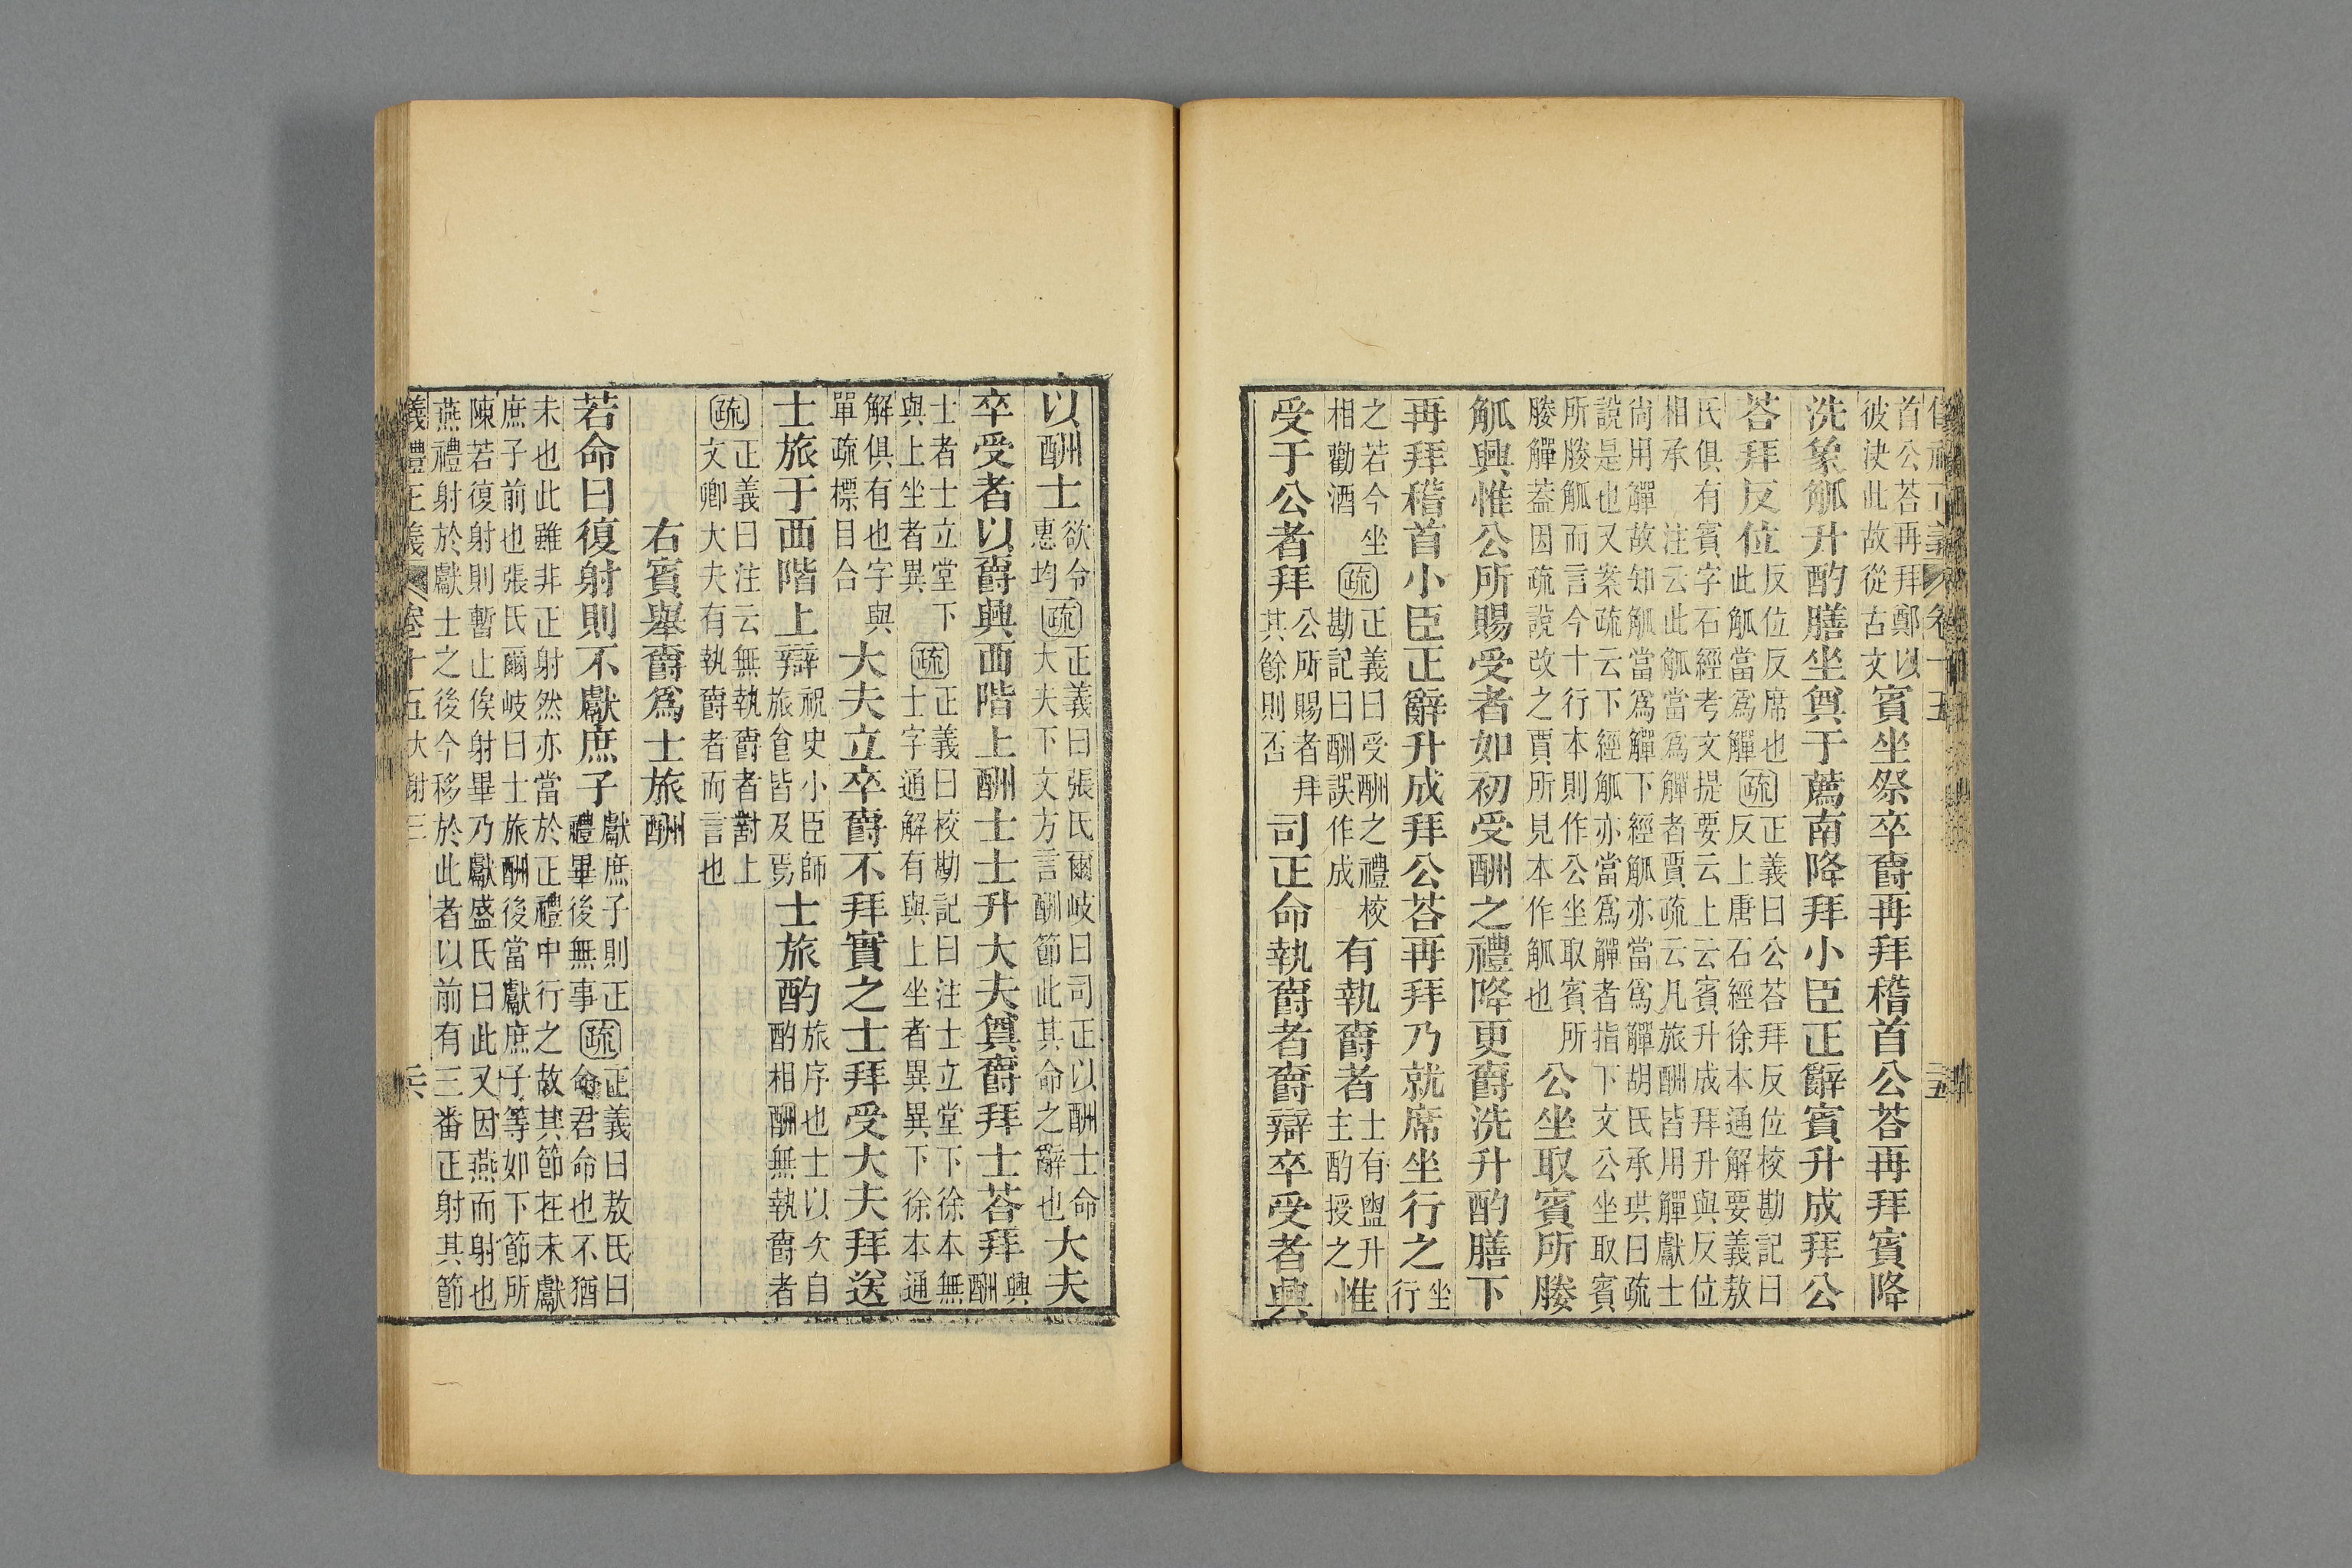 首公荅再拜鄭以
彼決此故從古文
賓坐祭卒爵再拜稽首公荅再拜賓降
洗象觚升酌膳坐奠于薦南降拜小臣正辭賓升成拜公
荅拜反位
反位反席也
此觚當爲觶
疏
正義曰公荅拜反位校勘記曰
反上唐石經徐本通解要義敖
氏俱有賓字石經考文提要云上云賓升成拜升與反位
相承 注云此觚當爲觶者賈疏云凡旅酬皆用觶獻士
尚用觶故知觚當爲觶下經觚亦當爲觶胡氏承珙曰疏
說是也又案疏云下經觚亦當爲觶者指下文公坐取賓
所媵觚而言今十行本則作公坐取賓所
媵觶蓋因疏說改之賈所見本作觚也
公坐取賓所媵
觚興惟公所賜受者如初受酬之禮降更爵洗升酌膳下
再拜稽首小臣正辭升成拜公荅再拜乃就席坐行之
坐
行
之若今坐
相勸酒
疏
正義曰受酬之禮校
勘記曰酬誤作成
有執爵者
士有盥升
主酌授之
惟
受于公者拜
公所賜者拜
其餘則否
司正命執爵者爵辯卒受者興
以酬士
欲令
惠均
疏
正義曰張氏爾岐曰司正以酬士命
大夫下文方言酬節此其命之辭也
大夫
卒受者以爵興西階上酬士士升大夫奠爵拜士荅拜
興
酬
士者士立堂下
與上坐者異
疏
正義曰校勘記曰注士立堂下徐本無
士字通解有與上坐者異異下徐本通
解俱有也字與
單疏標目合
大夫立卒爵不拜實之士拜受大夫拜送
士旅于西階上辯
祝史小臣師
旅食皆及焉
士旅酌
旅序也士以次自
酌相酬無執爵者
疏
正義曰注云無執爵者對上
文卿大夫有執爵者而言也
右賓舉爵爲士旅酬
若命曰復射則不獻庶子
獻庶子則正
禮畢後無事
疏
正義曰敖氏曰
命君命也不猶
未也此雖非正射然亦當於正禮中行之故其節在未獻
庶子前也張氏爾岐曰士旅酬後當獻庶子等如下節所
陳若復射則暫止俟射畢乃獻盛氏曰此又因燕而射也
燕禮射於獻士之後今移於此者以前有三番正射其節